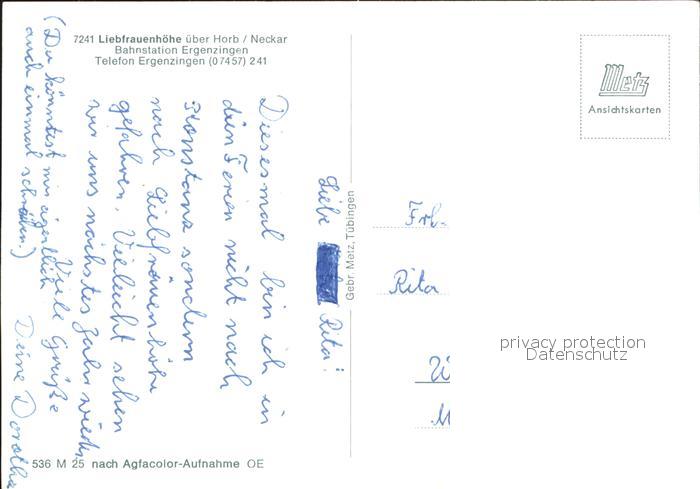 7241 Liebfrauenhöhe über Horb / Neckar
Bahnstation Ergenzingen
Telefon Ergenzingen (07457) 241
Liebe Rita!
Diesesmal bin ich in
den Ferien nicht nach
Konstanz sondern
nach Liebfrauenhöhe
gefahren. Vielleicht sehen
wir uns nächstes Jahr wieder
Viele Grüße
Deine Dorothea
(Du könntest mir eigentlich
auch einmal schreiben.)
536 M 25 nach Agfacolor-Aufnahme OE
Gebr. Metz, Tübingen
Metz
Ansichtskarten
Frl.
Rita
privacy protection
Datenschutz